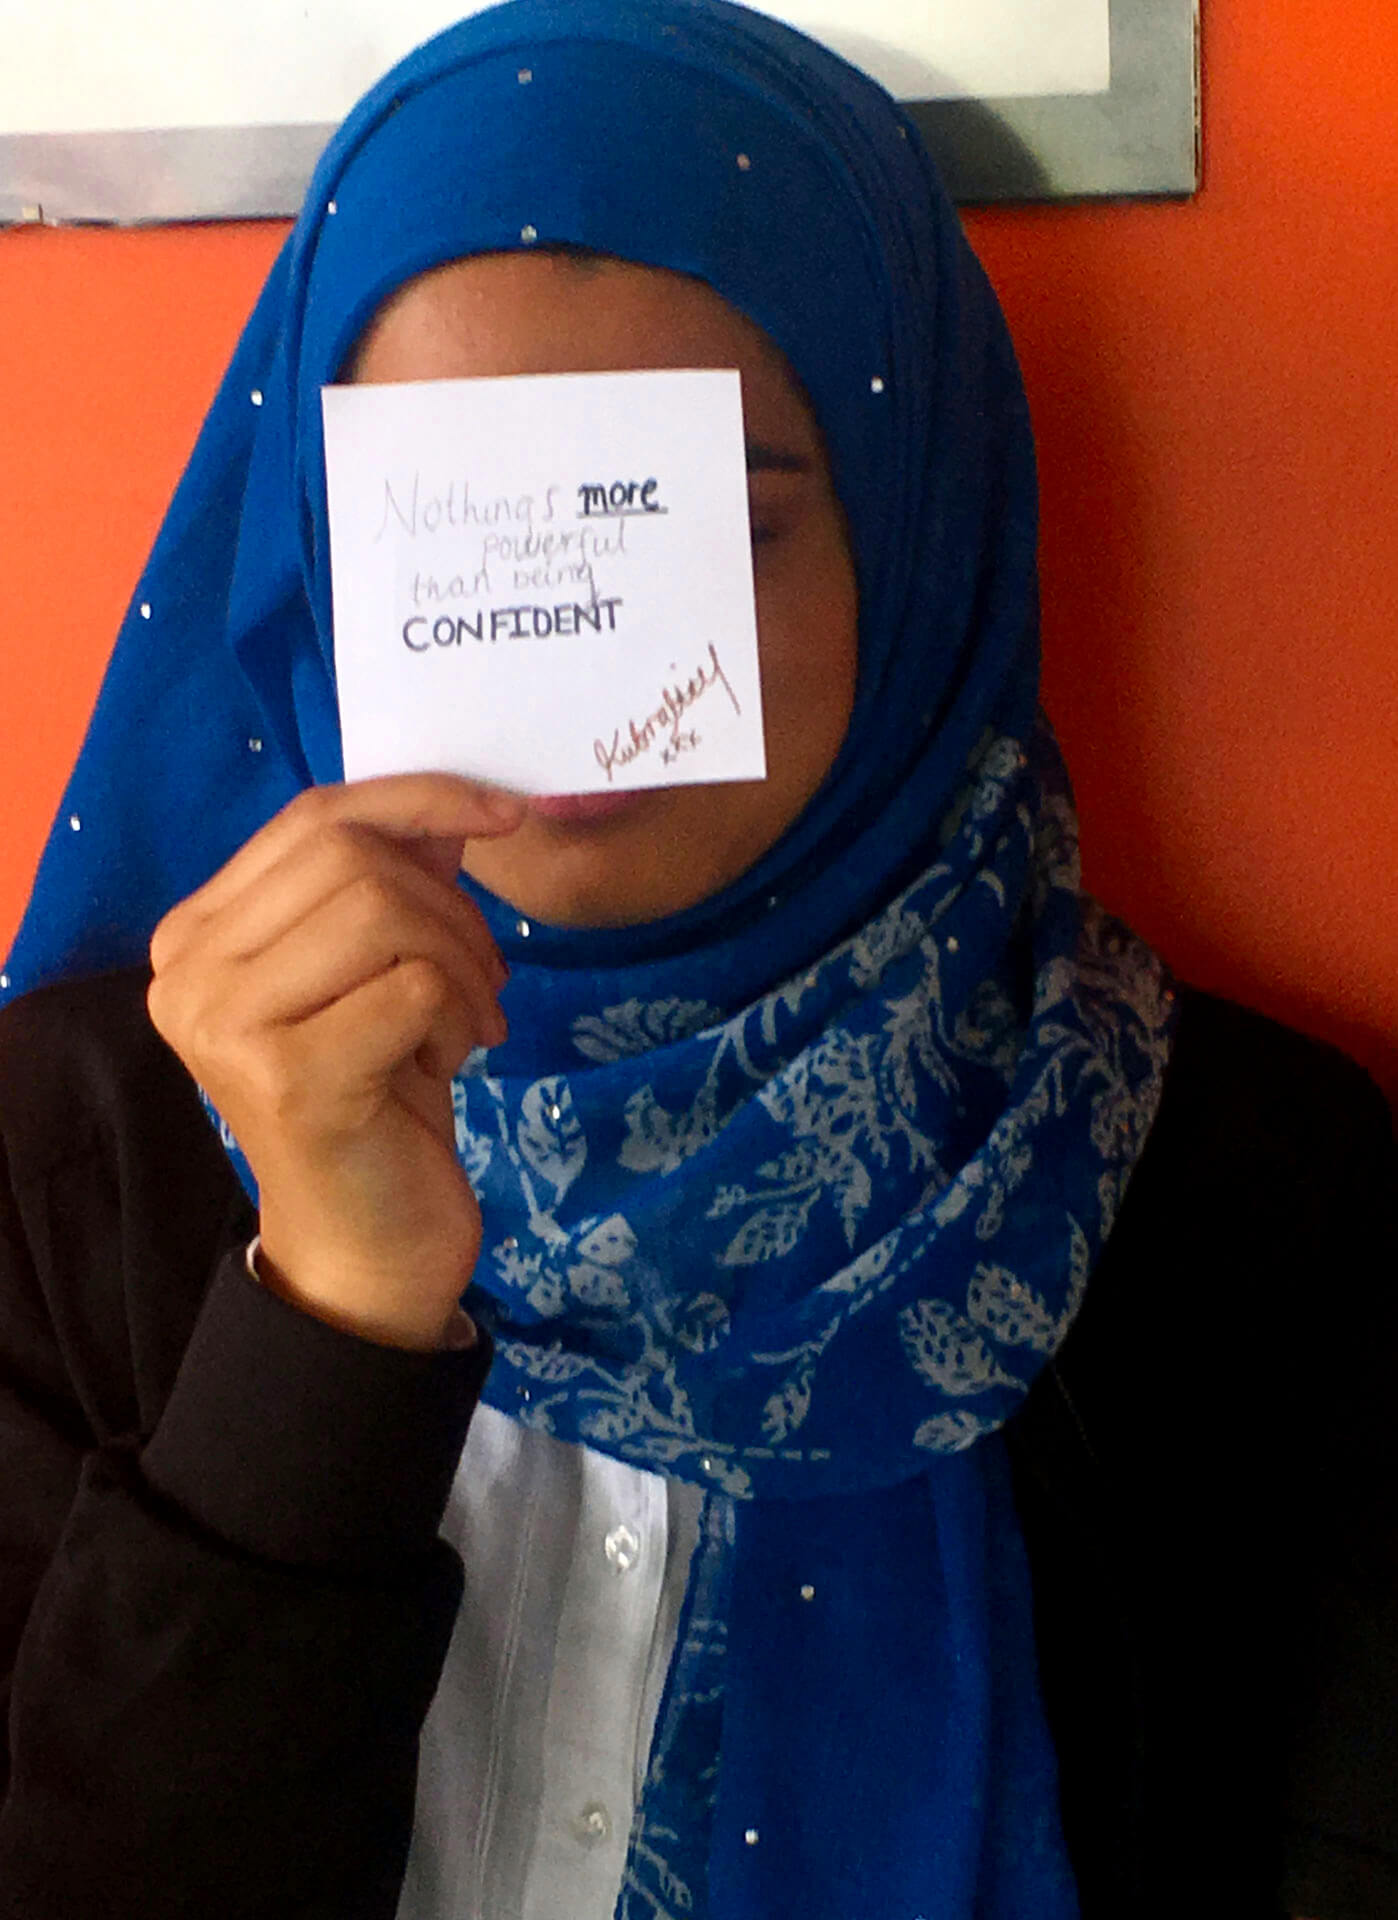 Nothings more
powerful
than being
CONFIDENT
xxx